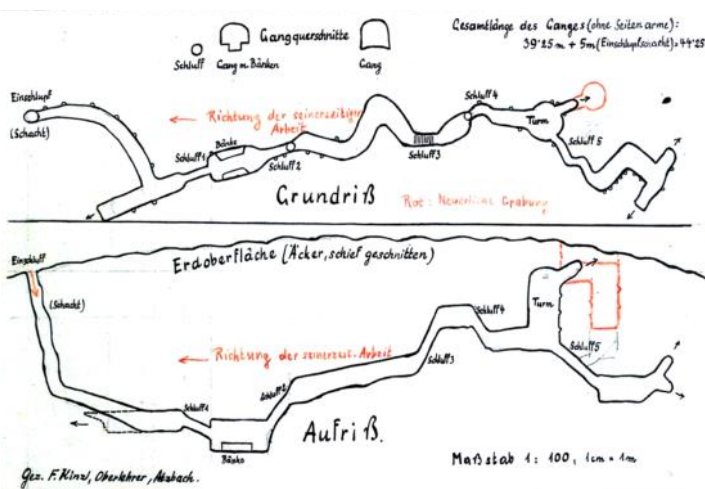 Gangquerschnitte
Schluff
Gang m. Bänken
Gang
Gesamtlänge des Ganges (ohne Seitenarme):
39'25m + 5m (Einschlupfschacht) = 44'25
Einschlupf
(Schacht)
Richtung der seinerzeitigen
Arbeit
Schluff 1
Bänke
Schluff 2
Schluff 3
Schluff 4
Turm
Schluff 5
Grundriß
Rot: Neuerliche Grabung
Erdoberfläche (Äcker, schief geschnitten)
Einschluff
(Schacht)
Richtung der seinerzeit. Arbeit
Schluff 1
Schluff 2
Schluff 3
Schluff 4
Turm
Schluff 5
Bänke
Aufriß.
Maßstab 1: 100, 1cm = 1m
Gez. F. Kinzl, Oberlehrer, Atzbach.